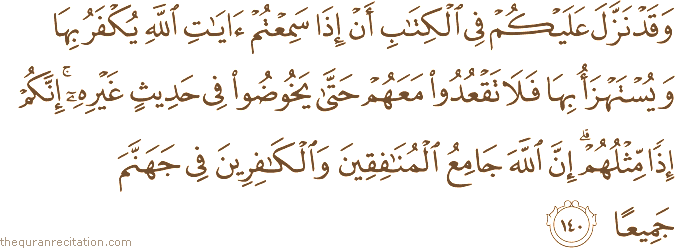 وَقَدْ نَزَّلَ عَلَيْكُمْ فِى ٱلْكِتَٰبِ أَنْ إِذَا سَمِعْتُمْ ءَايَٰتِ ٱللَّهِ يُكْفَرُ بِهَا
وَيُسْتَهْزَأُ بِهَا فَلَا تَقْعُدُوا۟ مَعَهُمْ حَتَّىٰ يَخُوضُوا۟ فِى حَدِيثٍ غَيْرِهِۦٓ ۚ إِنَّكُمْ
إِذًا مِّثْلُهُمْ ۗ إِنَّ ٱللَّهَ جَامِعُ ٱلْمُنَٰفِقِينَ وَٱلْكَٰفِرِينَ فِى جَهَنَّمَ
جَمِيعًا ١٤٠
thequranrecitation.com